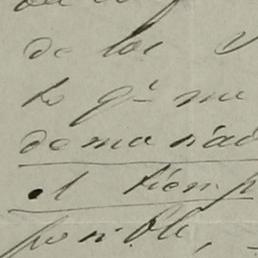 de los
to qe me
demasiad
el tiemp
posible,